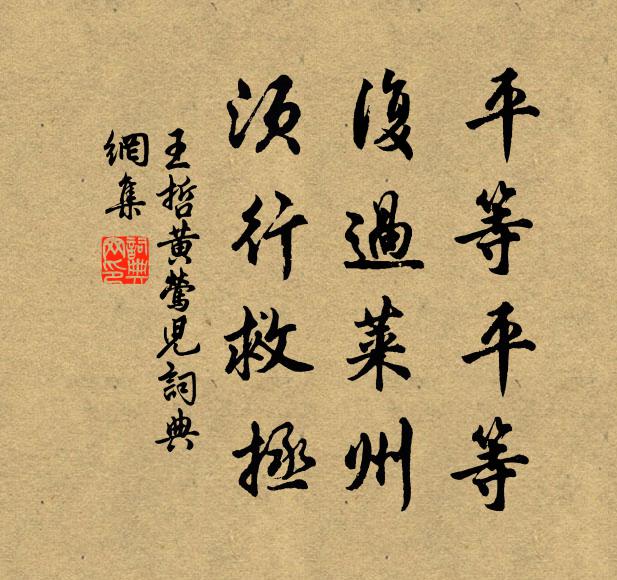 平等平等
復過萊州
須行救拯
王哲黃鶯兒詞典
網集
詞典網印